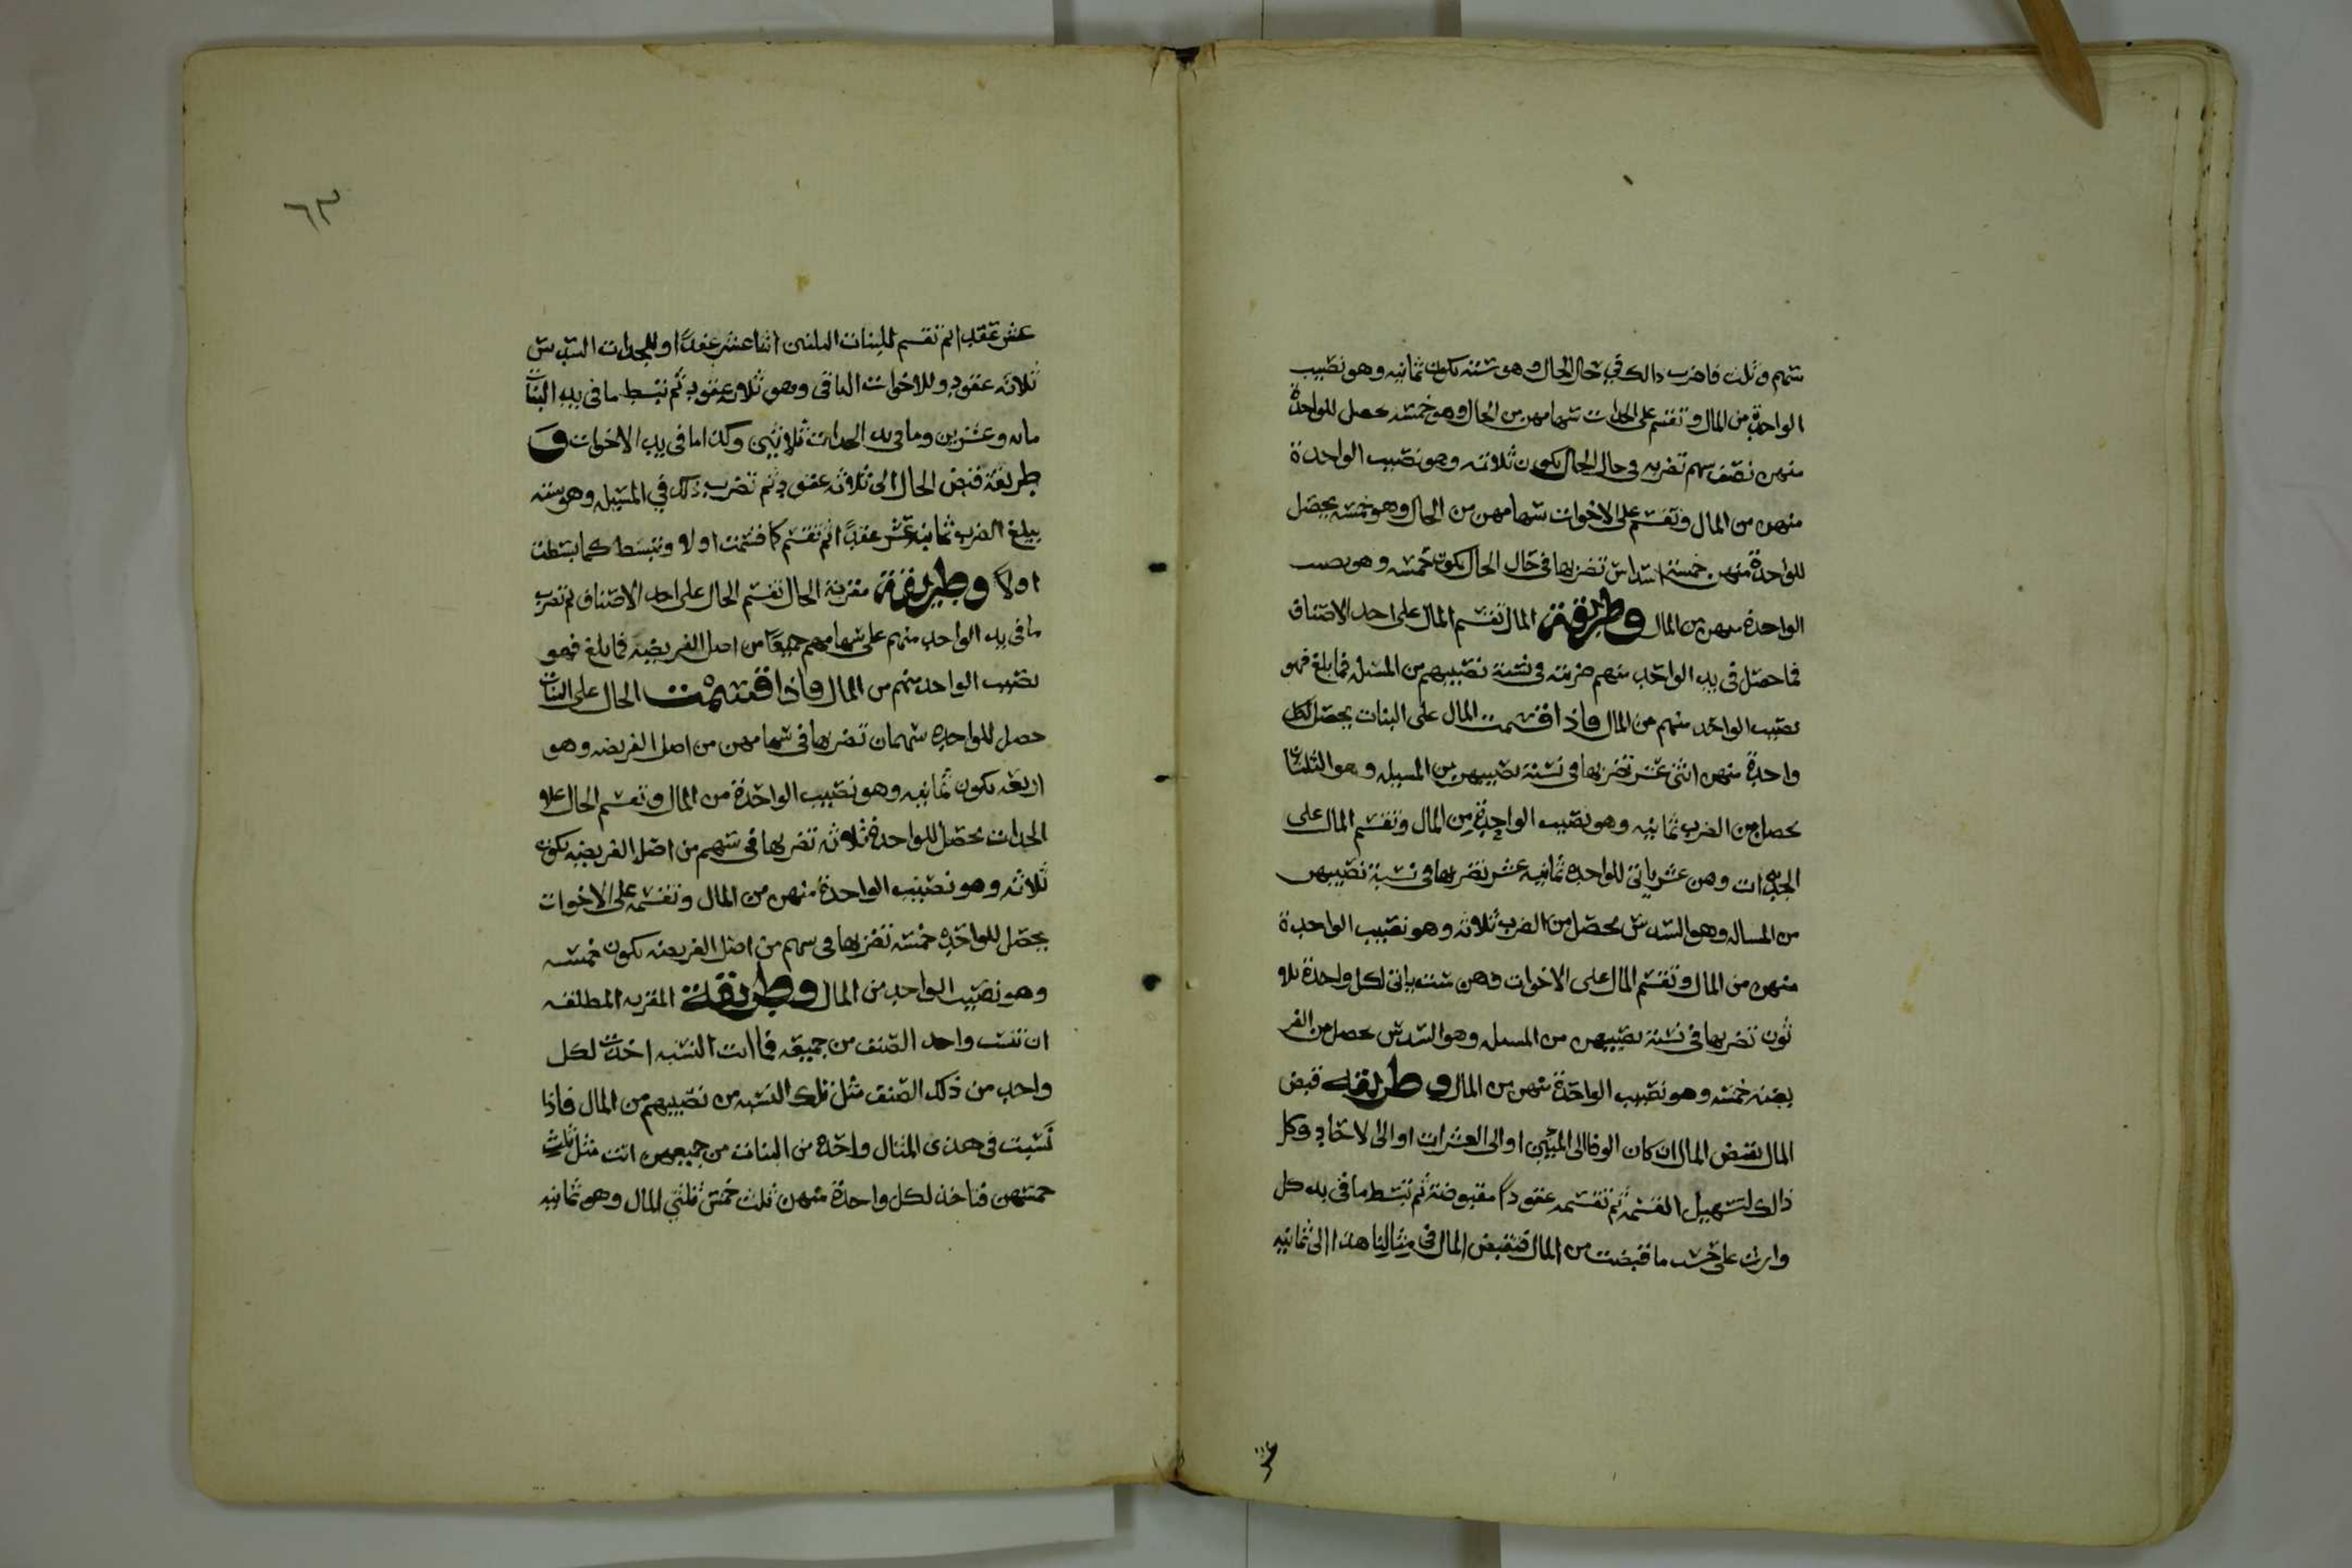 سهم وثلث فاضرب ذالك في حال الحال وهو ستة يكون ثمانيه وهو نصيب
الواحدة من المال وتقسم على الجدات سهامهن من الحال وهو خمسه حصل للواحدة
منهن نصف سهم تضربه في حال الحال يكون ثلاثه وهو نصيب الواحدة
منهن من المال وتقسم على الاخوات سهامهن من الحال وهو خمسه يحصل
للواحدة منهن خمسة اسداس تضربها في حال الحال يكون خمسه وهو نصيب
الواحدة منهن من المال وطريقة المال تقسم المال على احد الاصناف
فما حصل في يد الواحد منهم ضربته في نسبة نصيبهم من المسئلة فما بلغ فهو
نصيب الواحد منهم من المال فاذا قسمت المال على البنات يحصل لكل
واحدة منهن اثنى عشر تضربها في نسبة نصيبهن من المسيله وهو الثلثان
يحصل من الضرب ثمانيه وهو نصيب الواحدة من المال وتقسم المال على
الجدات وهن عشر ياتي للواحده ثمانيه عشر تضربها في نسبة نصيبهن
من المساله وهو السدس يحصل من الضرب ثلاثه وهو نصيب الواحدة
منهن من المال وتقسم المال على الاخوات وهن ست ياتي لكل واحدة ثلا
ثون تضربها في نسبة نصيبهن من المسيله وهو السدس يحصل من الضر
خمسه وهو نصيب الواحدة منهن من المال وطريقه قبض
المال تقبض المال ان كان الوفا الى الميين او الى العشرات او الى لاحاد وكل
ذالك لتسهيل القسمة ثم تقسمه عقودا مقبوضة ثم تبسط ما في يد كل
وارث على حسب ما قبضت من المال فتقبض المال في مثالنا هذا الى ثمانيه
عشر
٦٣
عشر عقدا ثم تقسم للبنات الثلثين اثنا عشر عقدا وللجدات السدس
ثلاثه عقود وللاخوات الباقي وهو ثلاثه عقود ثم تبسط ما في يد البنات
مائه وعشرين وما في يد الجدات ثلاثين وكذا ما في يد الاخوات و
طريقة قبض الحال الى ثلاثه عقود ثم تضرب ذلك في المسيله وهو سته
يبلغ الضرب ثمانية عشر عقدا ثم تقسم كما قسمت اولا وتبسط كما بسطت
اولا وطريقة مقربة الحال تقسم الحال على احد الاصناف ثم تضرب
ما في يد الواحد منهم على سهامهم جميعا من اصل الفريضه فما بلغ فهو
نصيب الواحد منهم من المال فاذا قسمت الحال على البنات
حصل للواحده سهمان تضربها في سهامهن من اصل الفريضه وهو
اربعه يكون ثمانيه وهو نصيب الواحدة من المال وتقسم الحال على
الجدات يحصل للواحدة ثلاثه تضربها في سهم من اصل الفريضه يكون
ثلاثه وهو نصيب الواحدة منهن من المال وتقسمه على الاخوات
يحصل للواحده خمسه تضربها في سهم من اصل الفريضه يكون خمسه
وهو نصيب الواحد من المال وطريقة المقربه المطلقه
ان تنسب واحد الصنف من جميعه فما اتت النسبه اخذت لكل
واحد من ذلك الصنف مثل تلك النسبه من نصيبهم من المال فاذا
نسبت في هذى المثال واحده من البنات من جميعهن اتت مثل ثلث
خمسهن فتاخذ لكل واحدة منهن ثلث خمس ثلثي المال وهو ثمانيه